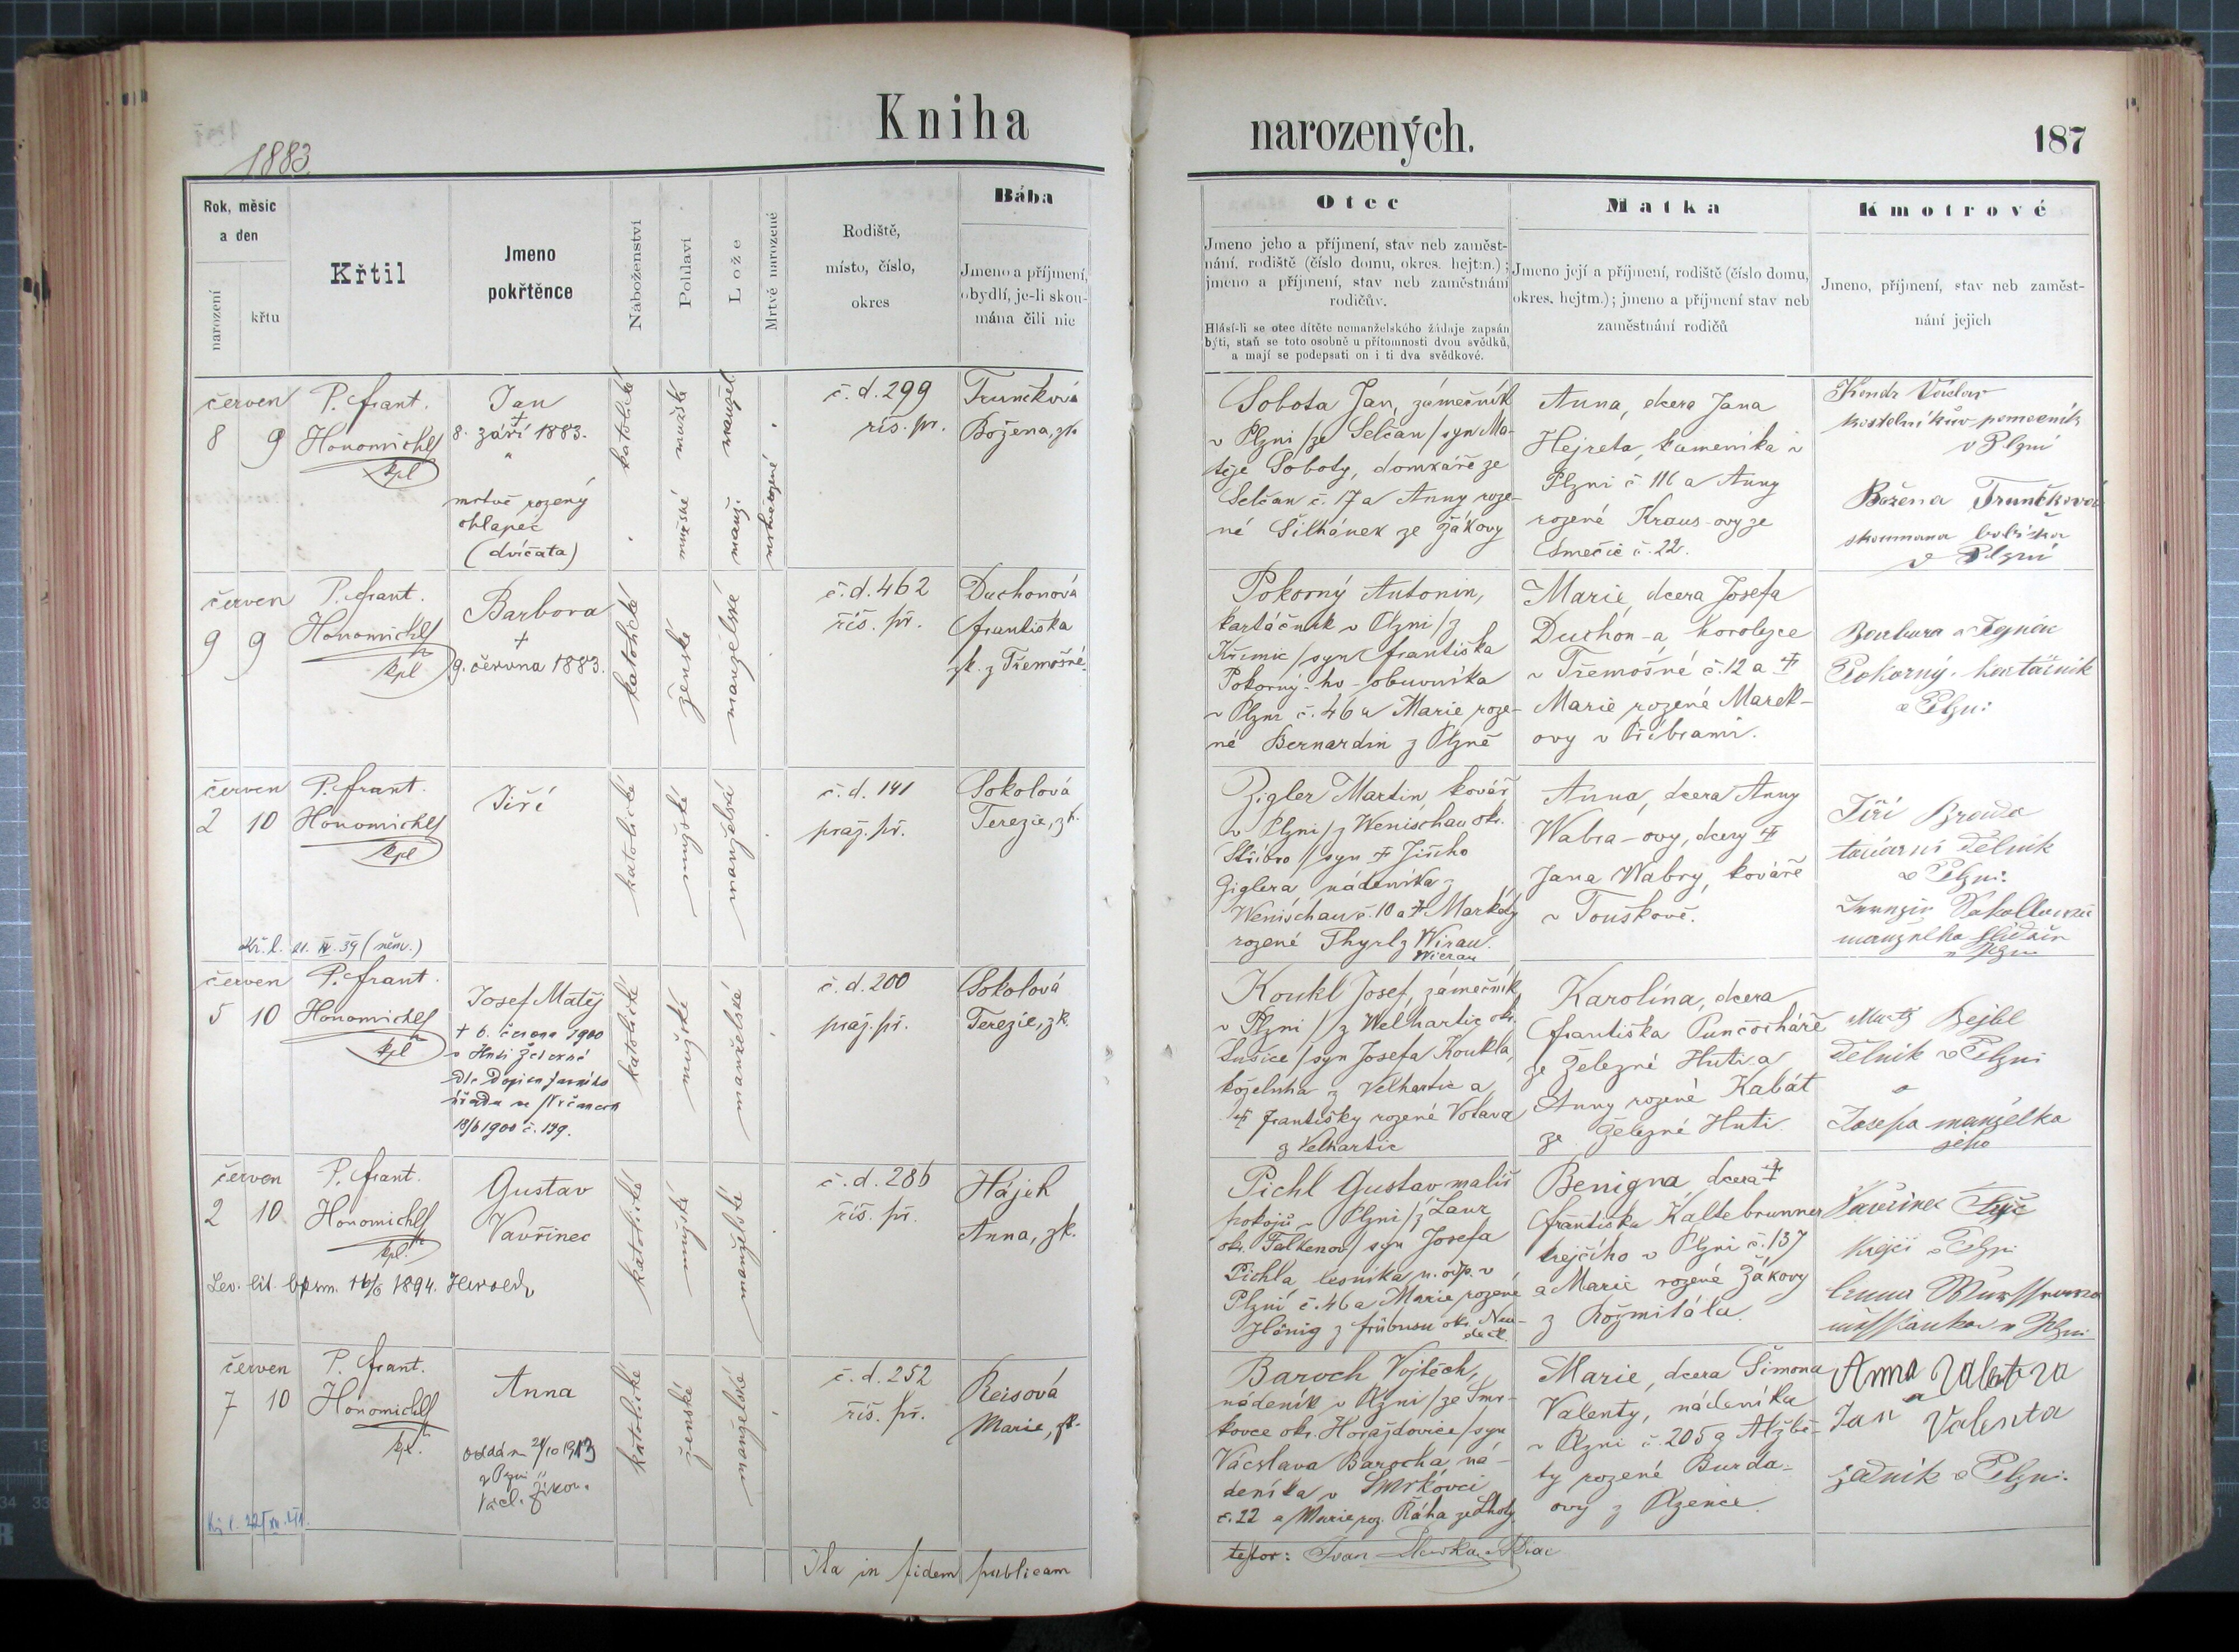 Kniha
narozených.
187
1883.
Rok, měsíc
a den
narození
křtu
Křtil
Jmeno
pokřtěnce
Náboženství
Pohlaví
Lože
Mrtvě narozené
Rodiště,
místo, číslo,
okres
Bába
Jmeno a příjmení,
obydlí, je-li skou-
mána čili nic
Otec
Jmeno jeho a příjmení, stav neb zaměst-
nání, rodiště (číslo domu, okres. hejtm.);
jmeno a příjmení, stav neb zaměstnání
rodičův.
Hlásí-li se otec dítěte nemanželského žádaje zapsán
býti, staň se toto osobně u přítomnosti dvou svědků,
a mají se podepsati on i ti dva svědkové.
Matka
Jmeno její a příjmení, rodiště (číslo domu,
okres. hejtm.); jmeno a příjmení stav neb
zaměstnání rodičů
Kmotrové
Jmeno, příjmení, stav neb zaměst-
nání jejich
červen
8 9
P. Frant.
Honomichl
kpl
Jan
+
8. září 1883.
mrtvě rozený
chlapec
(dvíčata)
katolické
mužské
manžel.
mužské
manž.
mrtvě rozené
č. d. 299
říš. př.
Trunčková
Božena, zk.
Sobota Jan, zámečník
v Plzni /ze Selčan/ syn Ma-
těje Soboty, domkáře ze
Selčan č. 17 a Anny roze-
né Šilhánek ze Žákovy
Anna, dcera Jana
Hejreta, kameníka v
Plzni č 116 a Anny
rozené Kraus-ovy ze
Smečic č. 22.
Václav
kostelníkův pomocník
v Plzni
Božena Trunčková
skoumaná babička
v Plzni
červen
9 9
P. Frant.
Honomichl
kpl
Barbora
+
9. června 1883.
katolické
ženské
manželské
č. d. 462
říš. př.
Duchonová
Františka
zk. z Třemošné.
Pokorný Antonín,
kartáčník v Plzni /z
Křimic/ syn Františka
Pokorný-ho obuvníka
v Plzni č. 46 a Marie roze-
né Bernardin z Plzně
Marie, dcera Josefa
Duchon-a horolezce
v Třemošné č. 12 a
Marie rozené Marek-
ovy v Příbrami.
Barbora a Ignác
Pokorný. kartáčník
v Plzni
červen
2 10
P. Frant.
Honomichl
kpl
Jiří
katolické
mužské
manželské
č. d. 141
praž. př.
Sokolová
Terezie, zk.
Zigler Martin, kovář
v Plzni /z Wenischau okr.
Stříbro/ syn Jiřího
Ziglera nádeníka z
Wenischau č. 10 a Markéty
rozené Thyrl z Wirau.
Wierau
Anna, dcera Anny
Wabra-ovy, dcery
Jana Wabry, kováře
v Touškově.
Jiří
tovární dělník
v Plzni.
v Plzni
Kř. l. 21. IV. 39 (něm.)
červen
5 10
P. Frant.
Honomichl
kpl
Josef Matěj
+ 6. června 1900
v Huti Železné
dle dopisu farního
úřadu ve
18/6 1900 č. 139.
katolické
mužské
manželské
č. d. 200
praž. př.
Sokolová
Terezie, zk.
Koukl Josef, zámečník
v Plzni / z Welhartic okr.
Sušice / syn Josefa Koukla,
koželuha z Velhartic a
Františky rozené Votava
z Velhartic
Karolína, dcera
Františka Punčocháře
ze Železné Huti a
Anny rozené Kabát
ze Železné Huti
Bejbl
dělník v Plzni
a
Josefa manželka
jeho
červen
2 10
P. Frant.
Honomichl
kpl.
Gustav
Vavřinec
katolické
mužské
manželské
č. d. 286
říš. př.
Hájek
Anna, zk.
Pichl Gustav malíř
pokojů v Plzni /z Lanz
okr. Falkenov/ syn Josefa
Pichla lesníka n. odp. v
Plzni č. 46 a Marie rozené
Hönig z Frübusu okr. Neu-
deck
Benigna dcera
Františka Kaltebrunner
krejčího v Plzni č. 137
a Marie rozené Žákovy
z Rožmitálu.
Vavřinec
krejčí v Plzni
Anna
v Plzni
červen
7 10
P. Frant.
Honomichl
kpl.
Anna
oddána 21/10 1913
v Plzni
Václ.
katolické
ženské
manželské
č. d. 252
říš. př.
Reisová
Marie, zk.
Baroch Vojtěch,
nádeník v Plzni /ze Smr-
kovce okr. Horažďovice/ syn
Václava Barocha, ná-
deníka v Smrkovci
č. 22 a Marie roz. Řáha ze Lhoty.
Marie, dcera Šimona
Valenty, nádeníka
v Plzni č. 205 a Alžbě-
ty rozené Burda-
ovy z Plzence.
Anna Valentova
a
Jan Valenta
zedník v Plzni.
Ita in fidem publicam
testor: Ivan